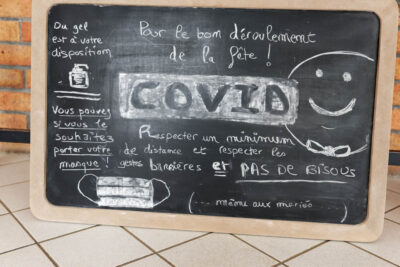 Du gel
est à votre
disposition
Vous pouvez
si vous le
souhaitez
porter votre
masque !
Pour le bom déroulement
de la fête !
COVID
Respecter un minimum
de distance et respecter les
gestes barrières et PAS DE BISOUS
(... même aux mariés)